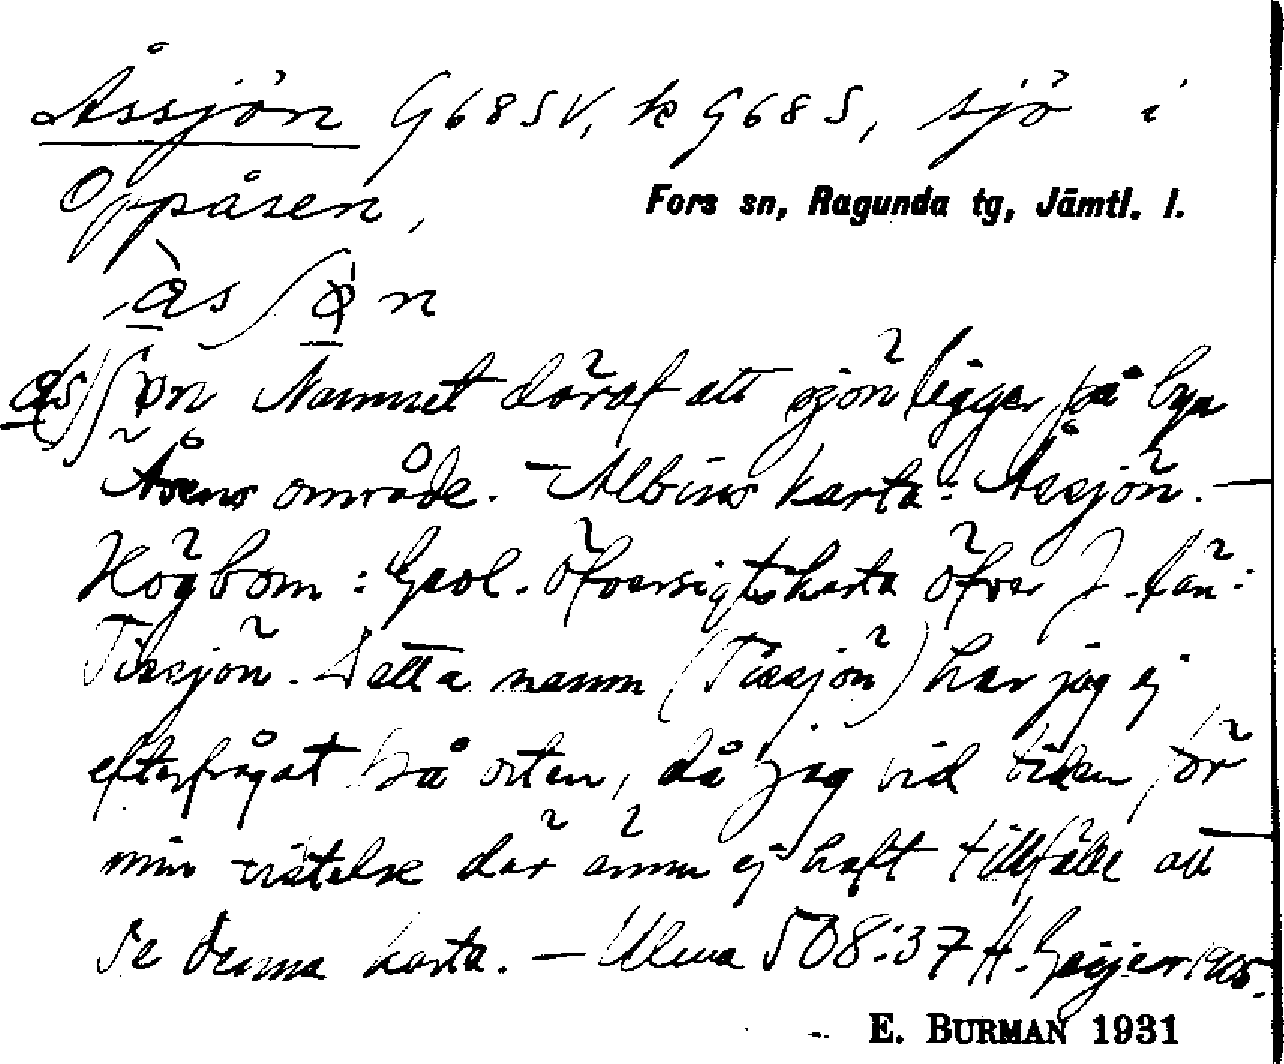 Åssjön G68SV, k G68S, sjö i
Oppåsen,
Fors sn, Ragunda tg, Jämtl. l.
Namnet däraf att sjön ligger på byn
Åsens område. – Albins karta: Åssjön. –
Högbom: Geol. öfversigtskarta öfver J. län:
Tissjön. Detta namn (Tissjön) har jag ej
efterfrågat på orten, då jag vid tiden för
min vistelse där ännu ej haft tillfälle att
se denna karta. – Ulma 508:37 H. Geijer 1905.
E. BURMAN 1931